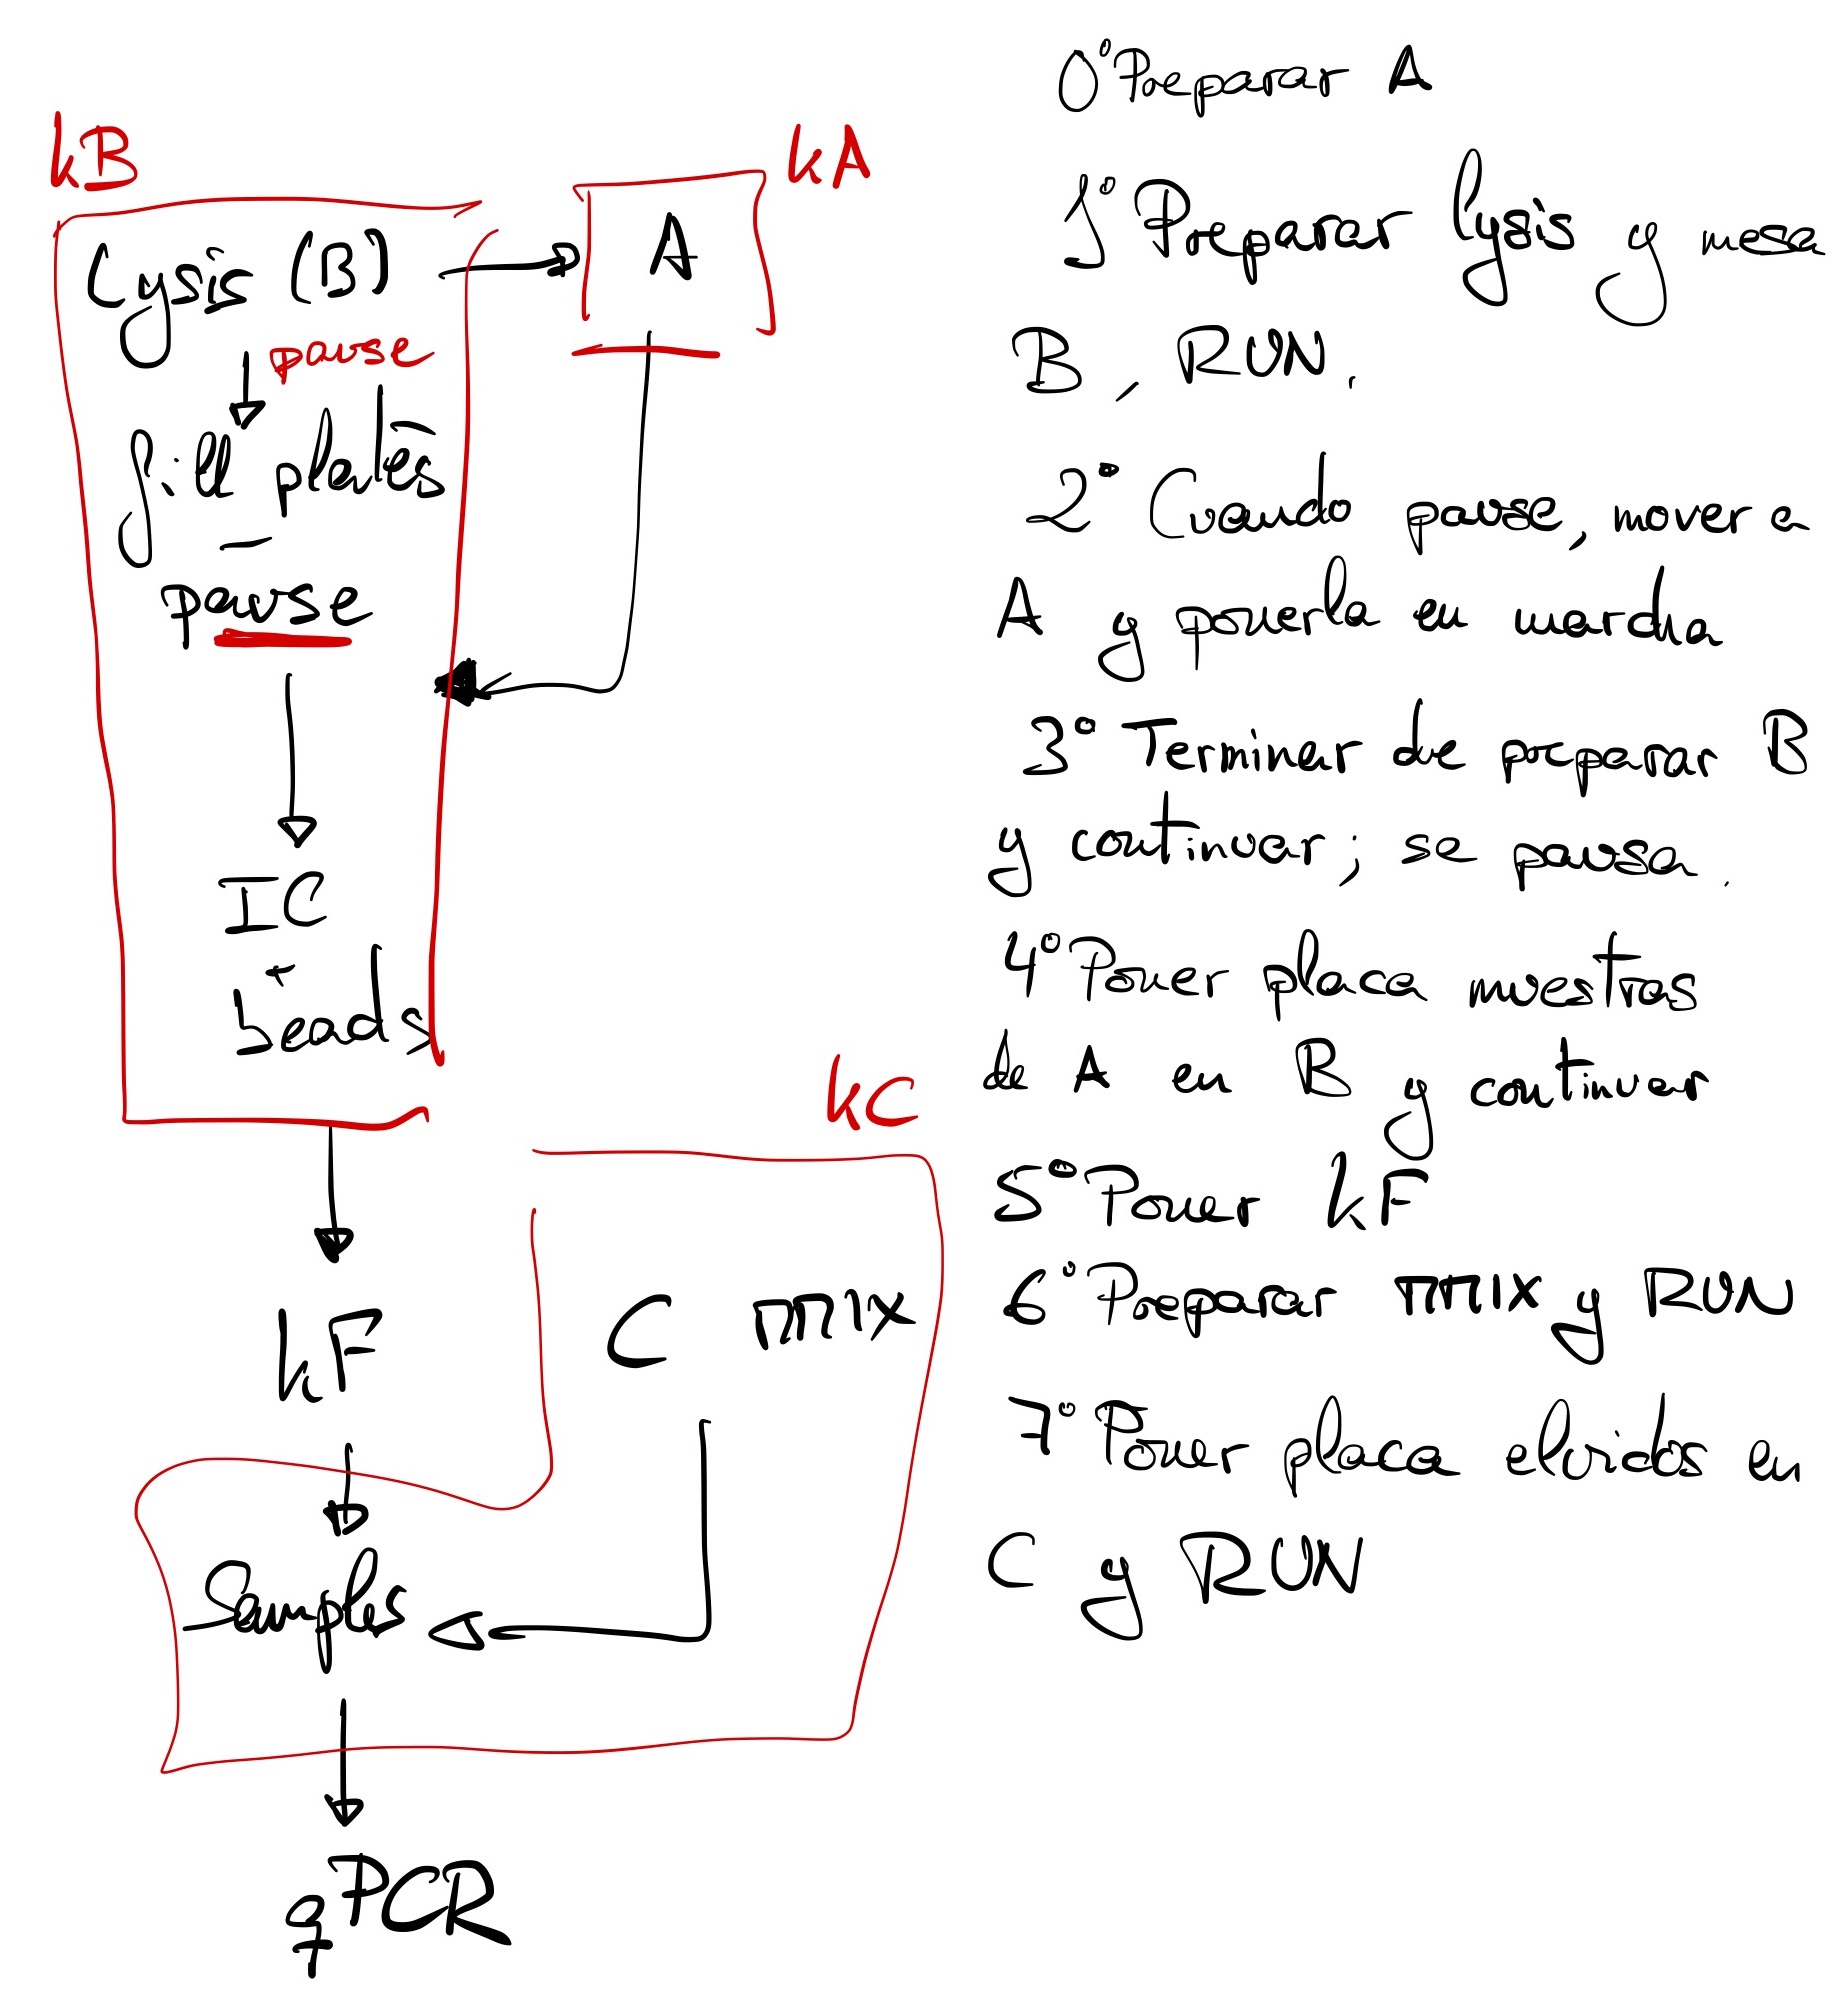 kB
kA
Lysis (B)
A
pause
fill plates
pause
IC
beads
kC
kF
C MMIX
Samples
qPCR
0º Preparar A
1º Preparar lysis y mesa
B, RUN.
2º Cuando pause, mover a
A y ponerla en marcha
3º Terminar de preparar B
y continuar; se pausa.
4º Poner placa muestras
de A en B y continuar
5º Poner kF
6º Preparar MMIX y RUN
7º Poner placa eluidos en
C y RUN